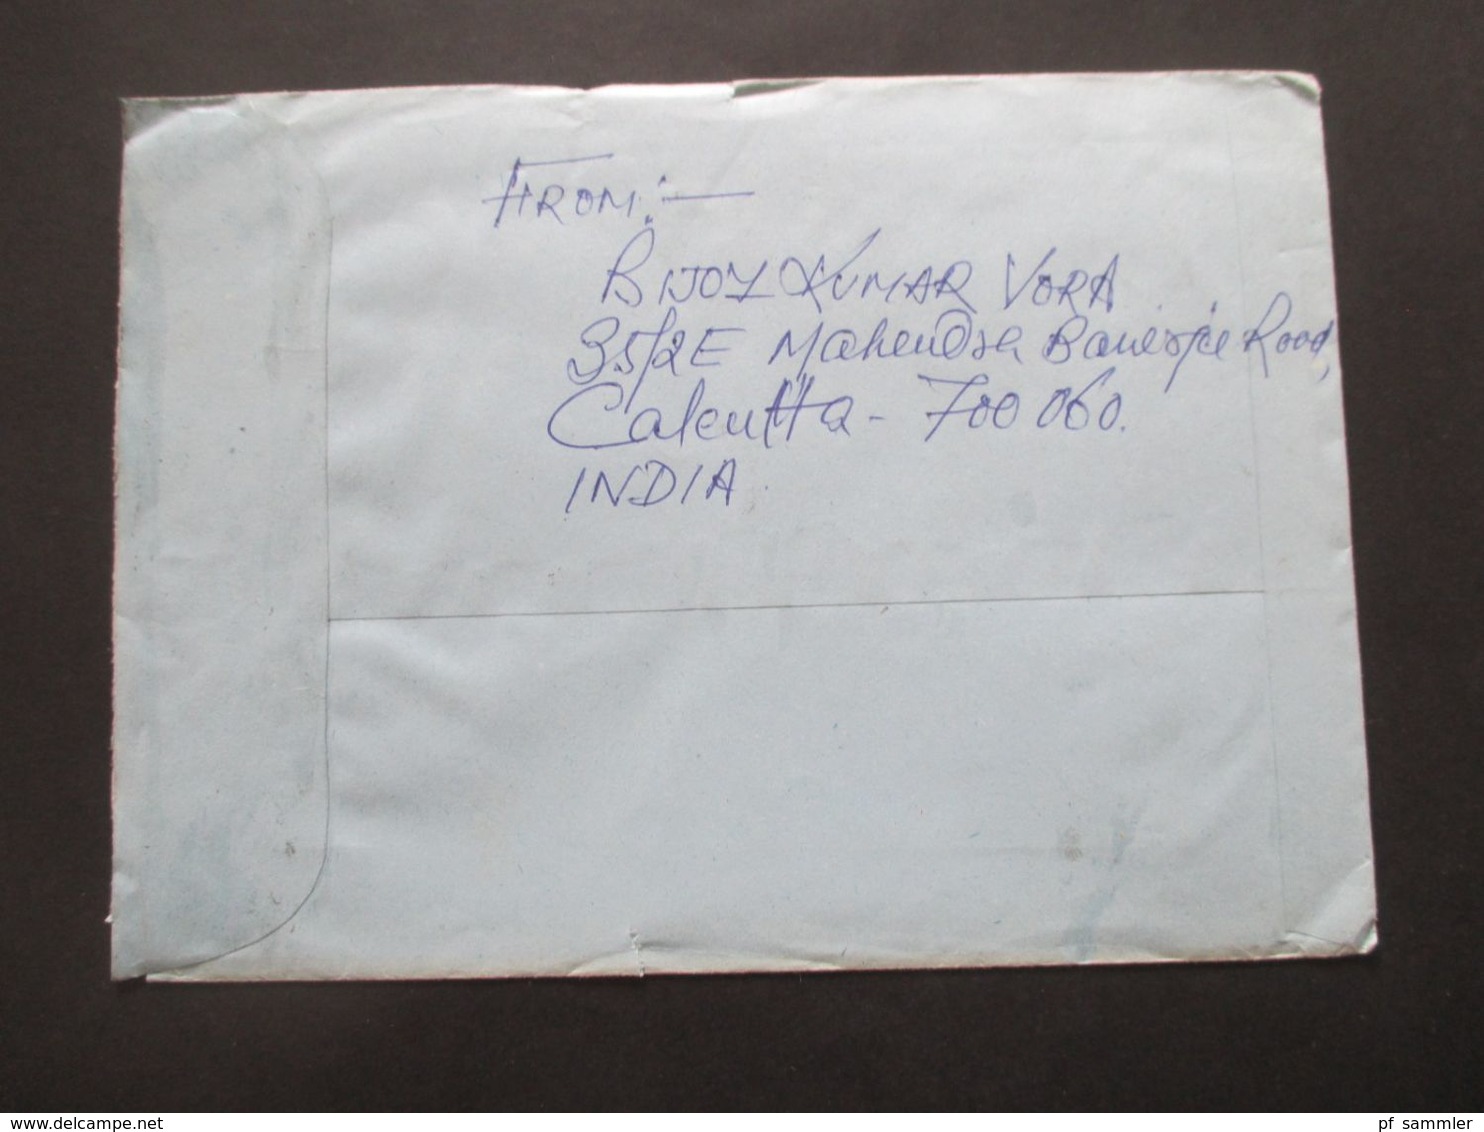 FROM:—
BIJOY KUMAR VORA
35/2E Mahendra Banerjee Road,
Calcutta - 700 060.
INDIA
www.delcampe.net
pf_sammler